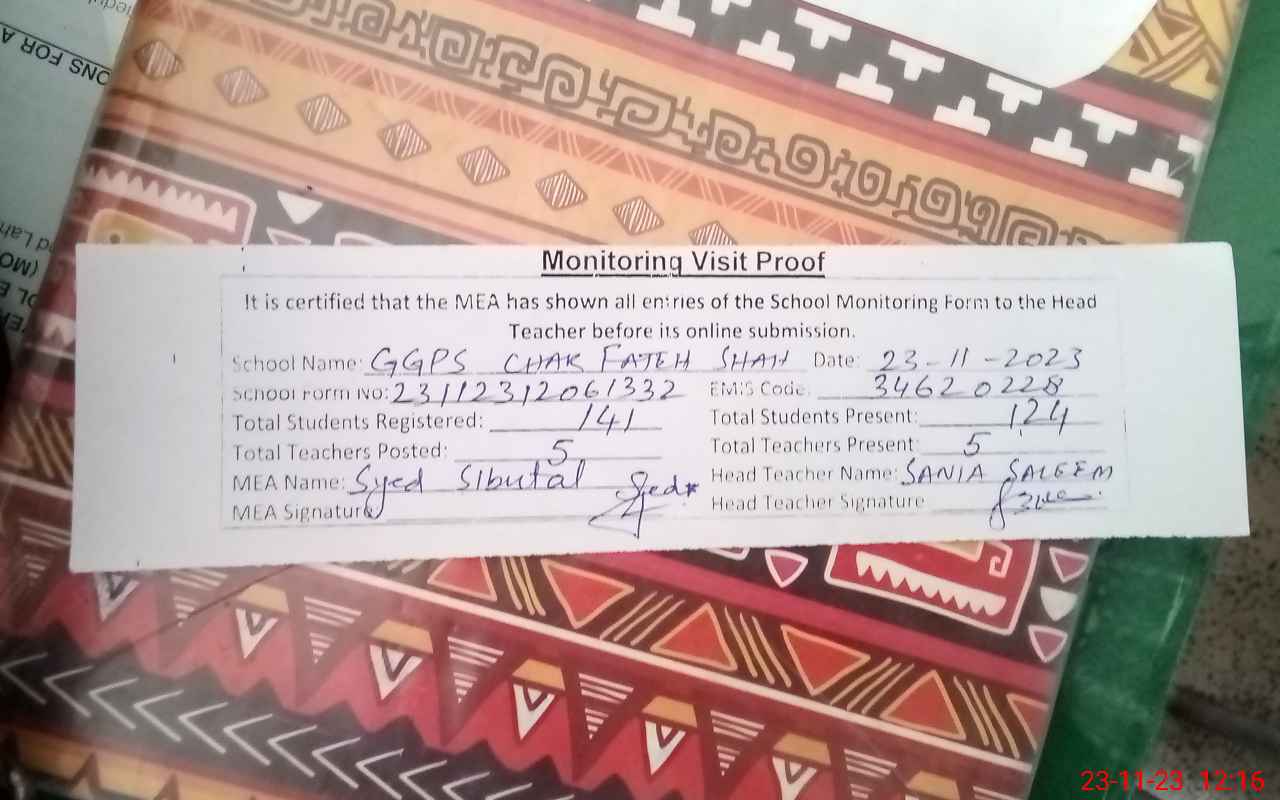 Monitoring Visit Proof
It is certified that the MEA has shown all entries of the School Monitoring Form to the Head
Teacher before its online submission.
School Name: GGPS CHAK FATEH SHAH Date: 23-11-2023
School Form No: 23112312061332 EMIS Code: 34620228
Total Students Registered: 141 Total Students Present: 124
Total Teachers Posted: 5 Total Teachers Present: 5
MEA Name: Syed Sibutal Head Teacher Name: SANIA SALEEM
MEA Signature Head Teacher Signature
ONS FOR A
23-11-23 12:16